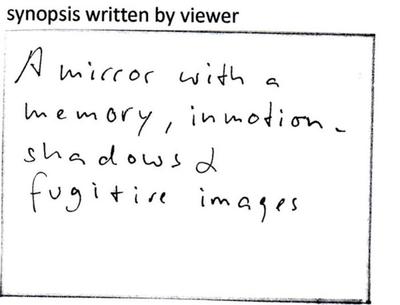 synopsis written by viewer
A mirror with a
memory, inmotion-
shadows &
fugitive images